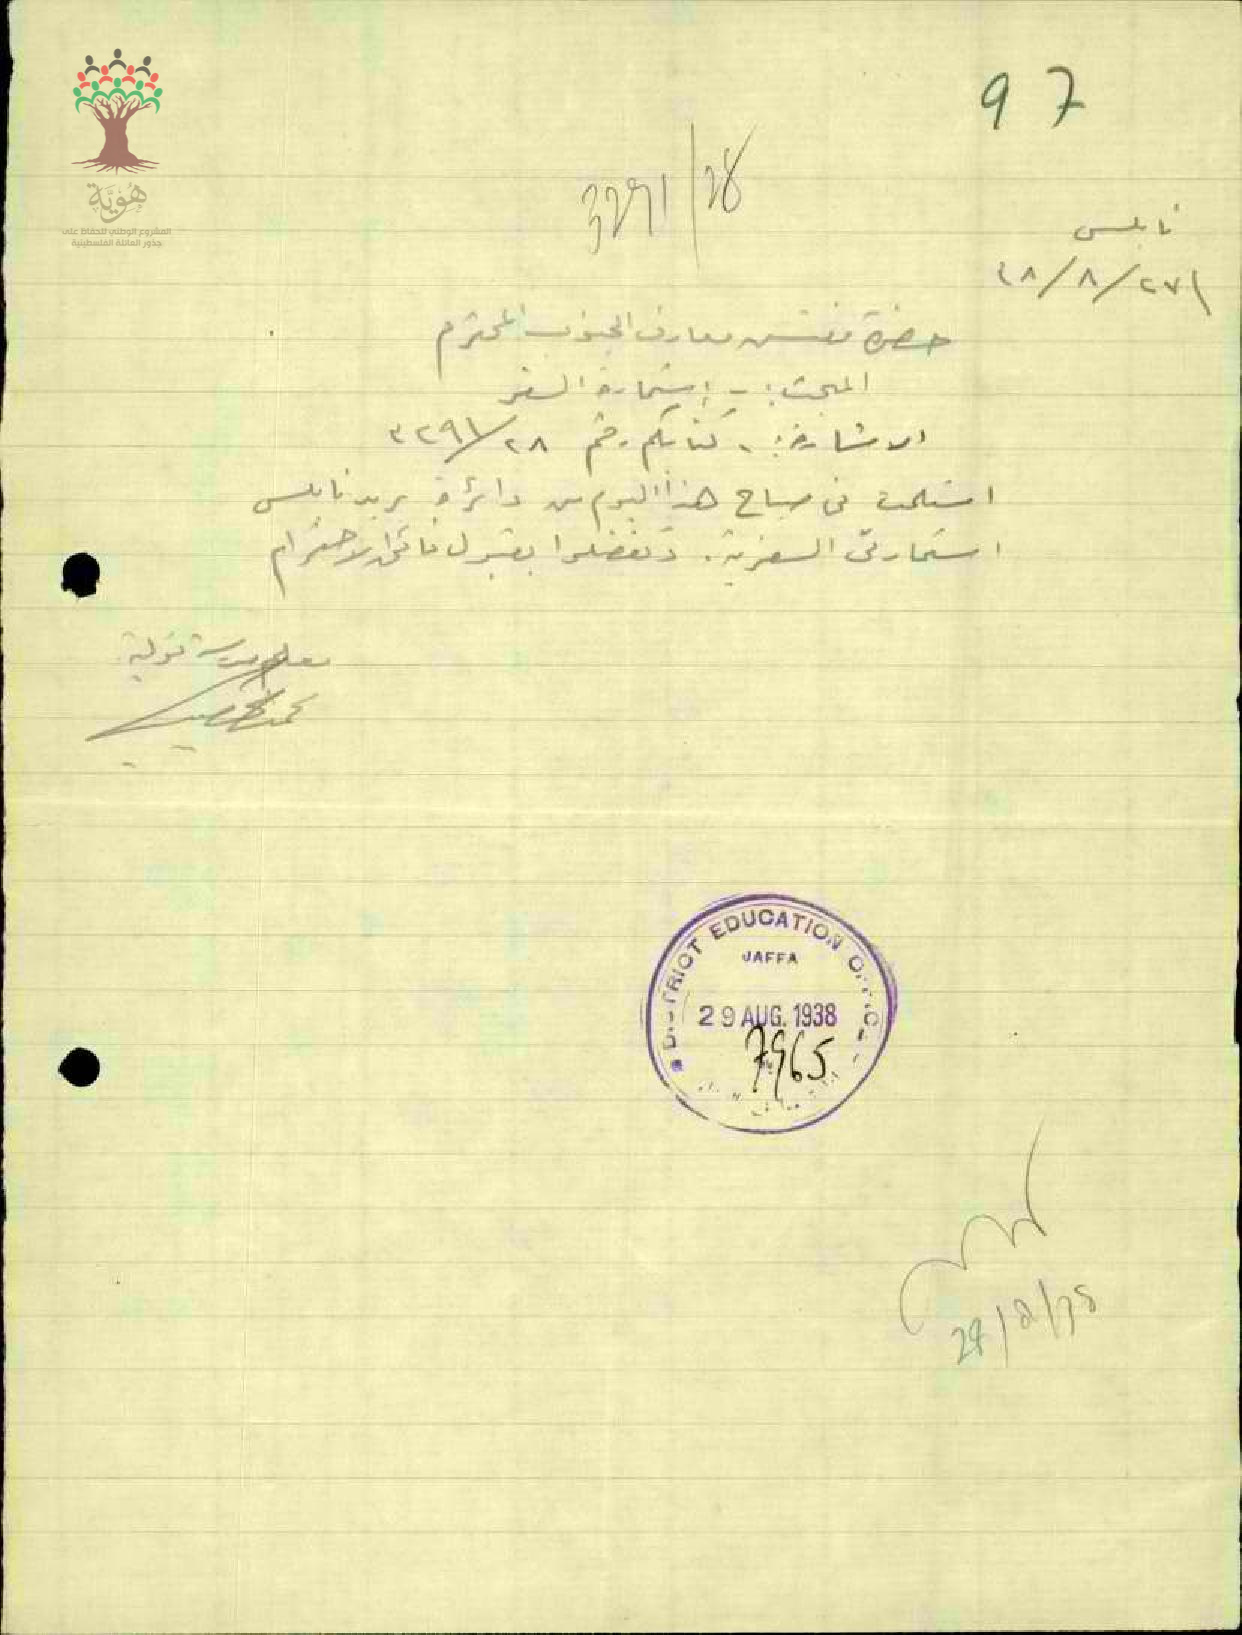 97
3291/28
هُوِيَّة
المشروع الوطني للحفاظ على
جذور العائلة الفلسطينية
نابلس
٢٧/٨/٣٨
حضرة مفتش معارف الجنوب المحترم
المبحث: - إستمارة السفر
الاشارة: - كتابكم رقم ٣٢٩١/٢٨
استلمت في صباح هذا اليوم من دائرة بريد نابلس
استمارتي السفرية. وتفضلوا بقبول فائق الاحترام
معلم مدرسة قولية
DISTRICT EDUCATION OFFICE
JAFFA
29 AUG. 1938
7965